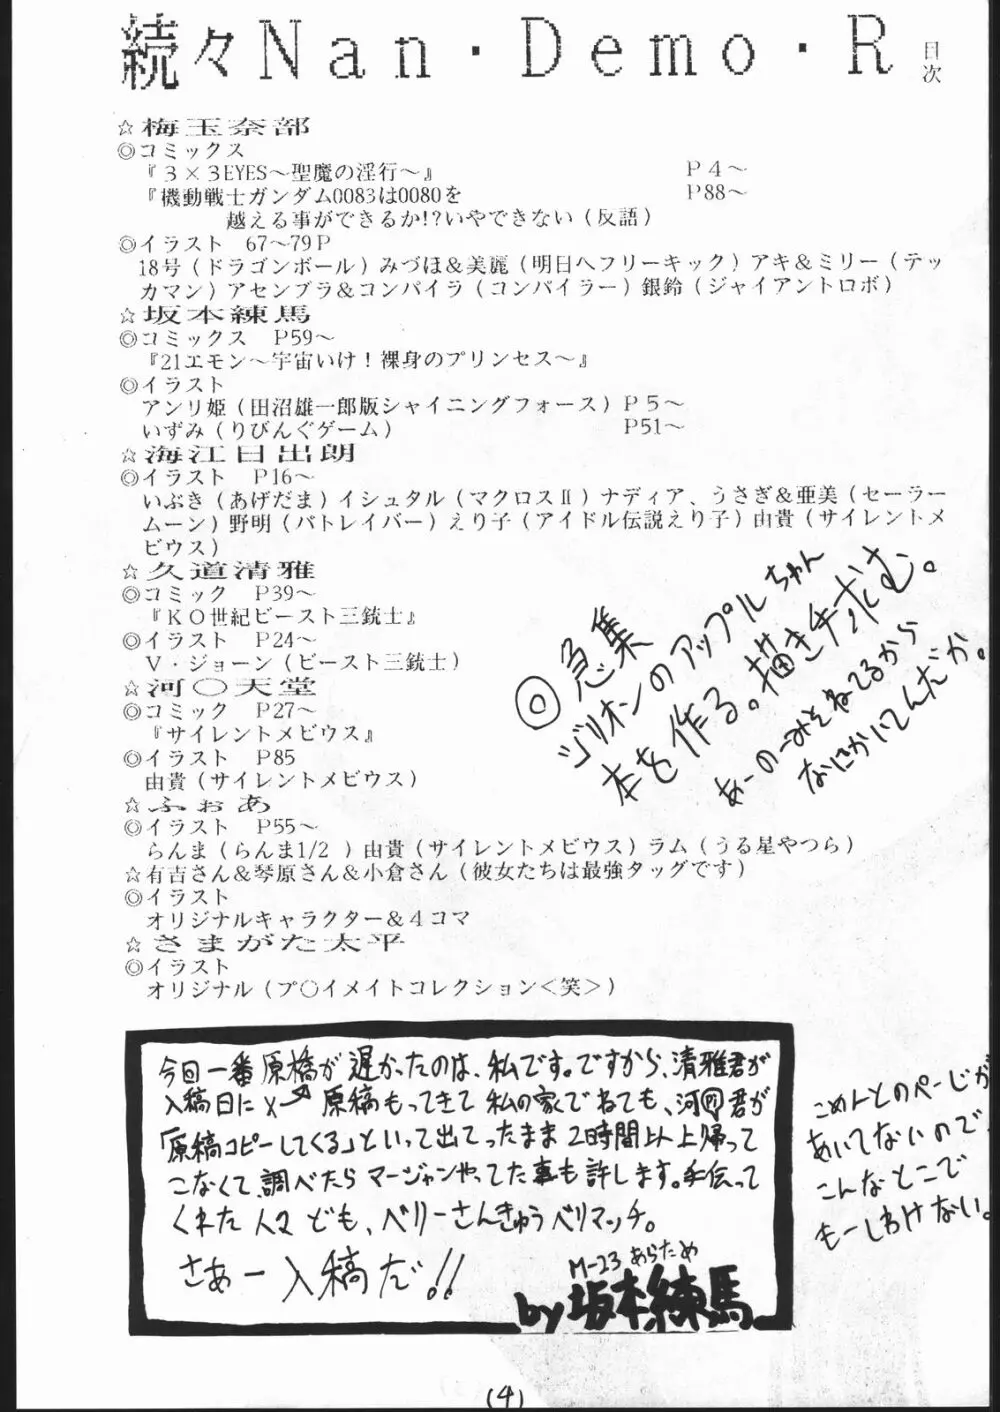 続々Nan・Demo・R 目次
☆梅玉奈部
◎コミックス
『3×3EYES〜聖魔の淫行〜』 P4〜
『機動戦士ガンダム0083は0080を P88〜
越える事ができるか!?いやできない（反語）
◎イラスト 67〜79P
18号（ドラゴンボール）みづほ＆美麗（明日へフリーキック）アキ＆ミリー（テッ
カマン）アセンブラ＆コンパイラ（コンパイラー）銀鈴（ジャイアントロボ）
☆坂本練馬
◎コミックス P59〜
『21エモン〜宇宙いけ！裸身のプリンセス〜』
◎イラスト
アンリ姫（田沼雄一郎版シャイニングフォース）P5〜
いずみ（りびんぐゲーム） P51〜
☆海江日出朗
◎イラスト P16〜
いぶき（あげだま）イシュタル（マクロスⅡ）ナディア、うさぎ＆亜美（セーラー
ムーン）野明（パトレイバー）えり子（アイドル伝説えり子）由貴（サイレントメ
ビウス）
☆久道清雅
◎コミック P39〜
『KO世紀ビースト三銃士』
◎イラスト P24〜
V・ジョーン（ビースト三銃士）
☆河〇天堂
◎コミック P27〜
『サイレントメビウス』
◎イラスト P85
由貴（サイレントメビウス）
☆ふぉあ
◎イラスト P55〜
らんま（らんま1/2 ）由貴（サイレントメビウス）ラム（うる星やつら）
☆有吉さん＆琴原さん＆小倉さん（彼女たちは最強タッグです）
◎イラスト
オリジナルキャラクター＆4コマ
☆さまがた太平
◎イラスト
オリジナル（プ〇イメイトコレクション＜笑＞）
◎急集
ジリオンのアップルちゃん
本を作る。描き手求む。
あーのーみそねてるから
なにかいてんだか。
今回一番原橋が遅かったのは、私です。ですから、清雅君が
入稿日に 原稿もってきて私の家でねても、河〇君が
「原稿コピーしてくる」といって出てったまま2時間以上帰って
こなくて、調べたらマージャンやってた事も許します。手伝って
くれた人々ども、ベリーさんきゅうベリマッチ。
さあー入稿だ!!
M-23あらため
by 坂本練馬
こめんとのページが
あいてないので、
こんなとこで
もーしわけない。
(4)